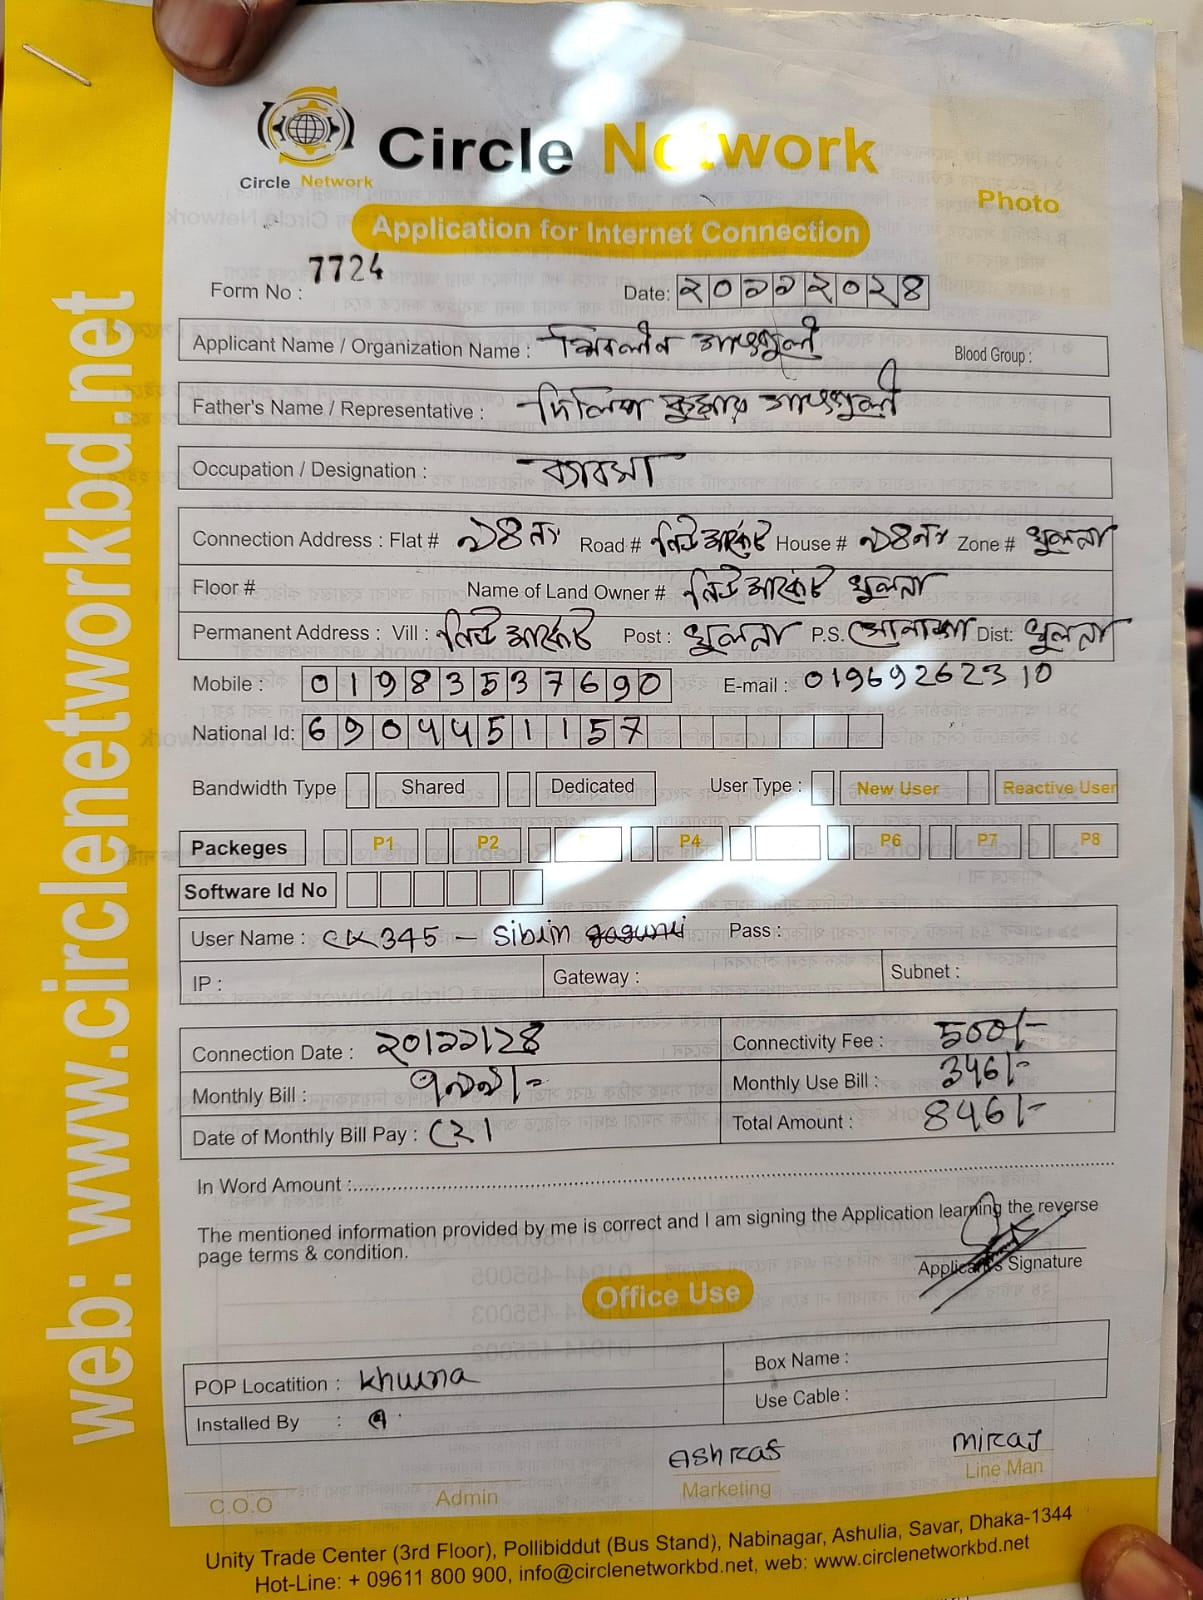 Circle Network
Circle Network
Photo
Application for Internet Connection
Form No : 7724
Date: ২০১১২০২৪
Applicant Name / Organization Name : শিবলীন গাংগুলী Blood Group :
Father's Name / Representative : দিলিপ কুমার গাংগুলী
Occupation / Designation : ব্যবসা
Connection Address : Flat # ১৪ নং Road # নিউ মার্কেট House # ১৪ নং Zone # খুলনা
Floor # Name of Land Owner # নিউ মার্কেট খুলনা
Permanent Address : Vill : নিউ মার্কেট Post : খুলনা P.S. সোনাডাঙ্গা Dist: খুলনা
Mobile : 01983537690 E-mail : 01969262310
National Id: 6904451157
Bandwidth Type Shared Dedicated User Type : New User Reactive User
Packeges P1 P2 P4 P6 P7 P8
Software Id No
User Name : CK345 – Sibin Pass :
IP : Gateway : Subnet :
Connection Date : ২০/১১/২৪ Connectivity Fee : 500/-
Monthly Bill : Monthly Use Bill : 346/-
Date of Monthly Bill Pay : Total Amount : 846/-
In Word Amount :
The mentioned information provided by me is correct and I am signing the Application learning the reverse
page terms & condition.
Applicant's Signature
Office Use
POP Locatition : Khulna Box Name :
Installed By : Use Cable :
Ashraf Miraj
C.O.O Admin Marketing Line Man
Unity Trade Center (3rd Floor), Pollibiddut (Bus Stand), Nabinagar, Ashulia, Savar, Dhaka-1344
Hot-Line: + 09611 800 900, info@circlenetworkbd.net, web: www.circlenetworkbd.net
web: www.circlenetworkbd.net